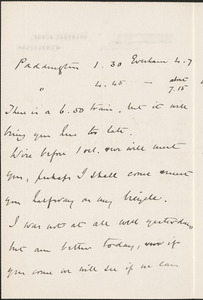 Paddington 1.30 Evesham 4.7
" 4.45 — about 7.15
There is a 6.50 train, but it will
bring you here too late.
Wire before 1 o'cl. & we will meet
you, perhaps I shall come & meet
you halfway on my bicycle.
I was not at all well yesterday,
but am better today, & if
you come we will see if we can